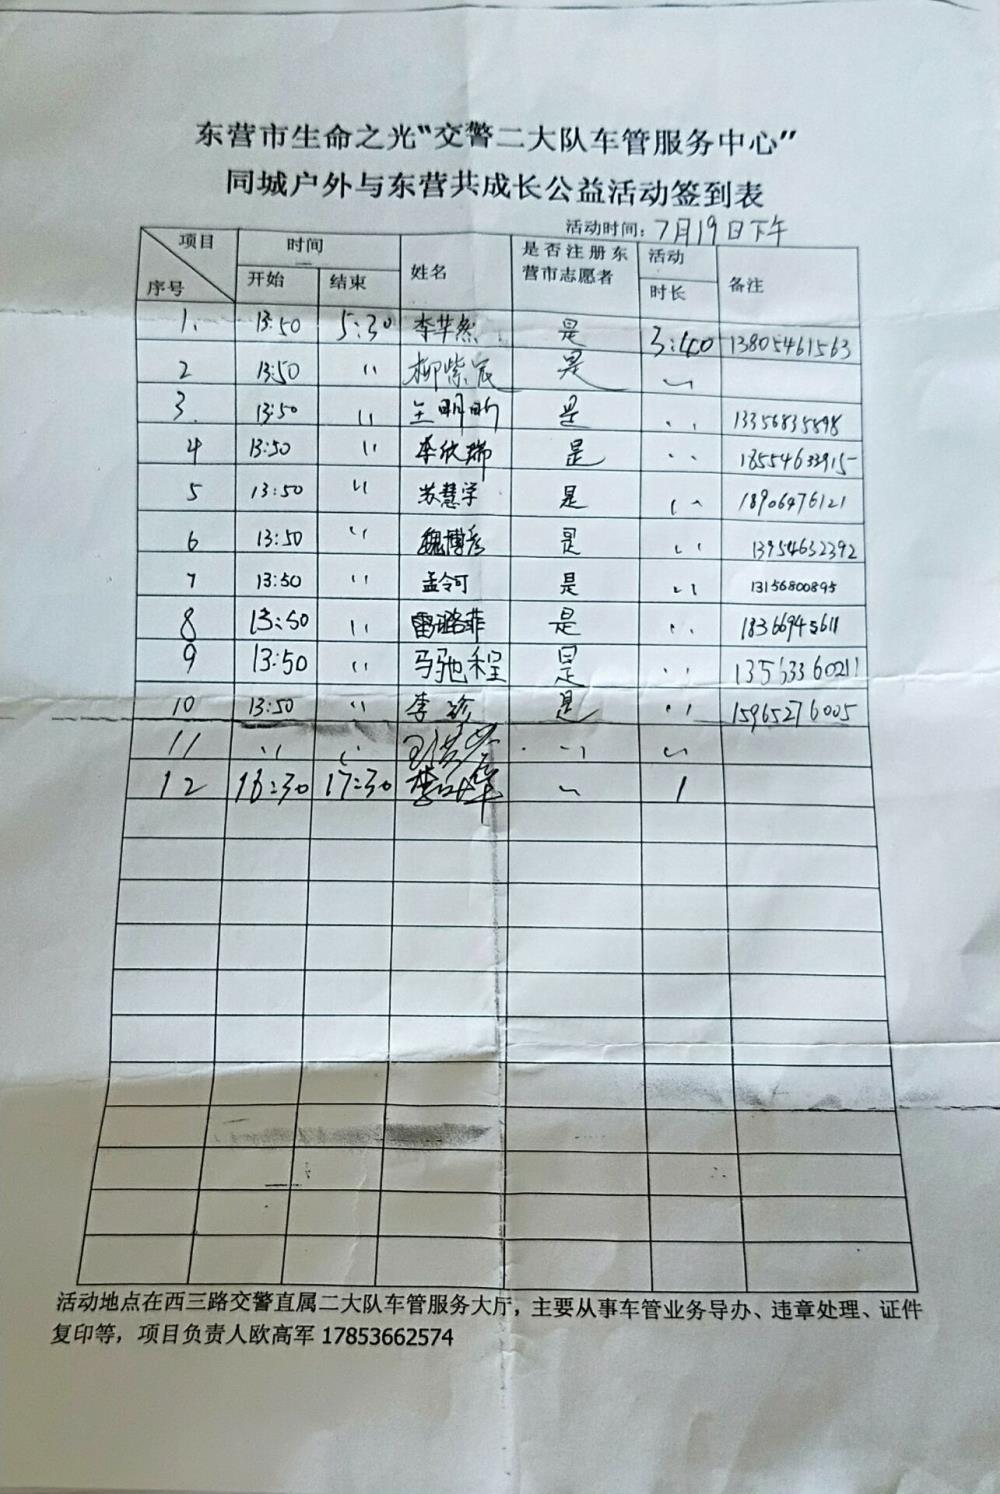 东营市生命之光“交警二大队车管服务中心”
同城户外与东营共成长公益活动签到表
活动时间：7月19日下午
项目 序号 时间 开始 结束 姓名 是否注册东营市志愿者 活动时长 备注
1. 13:50 5:30 李华然 是 3:40 13805461563
2 13:50 〃 柳紫宸 是 〃
3. 13:50 〃 王明昕 是 〃 13356835898
4 13:50 〃 李欣瑞 是 〃 18554633915
5 13:50 〃 苏慧宇 是 〃 18906476121
6 13:50 〃 魏博彦 是 〃 13954632392
7 13:50 〃 孟令可 是 〃 13156800895
8 13:50 〃 雷璐菲 是 〃 18366945611
9 13:50 〃 马驰程 是 〃 13563360211
10 13:50 〃 李珍 是 〃 15965276005
11 〃 〃 〃 〃
12 16:30 17:30 〃 1
活动地点在西三路交警直属二大队车管服务大厅，主要从事车管业务导办、违章处理、证件
复印等，项目负责人欧高军 17853662574